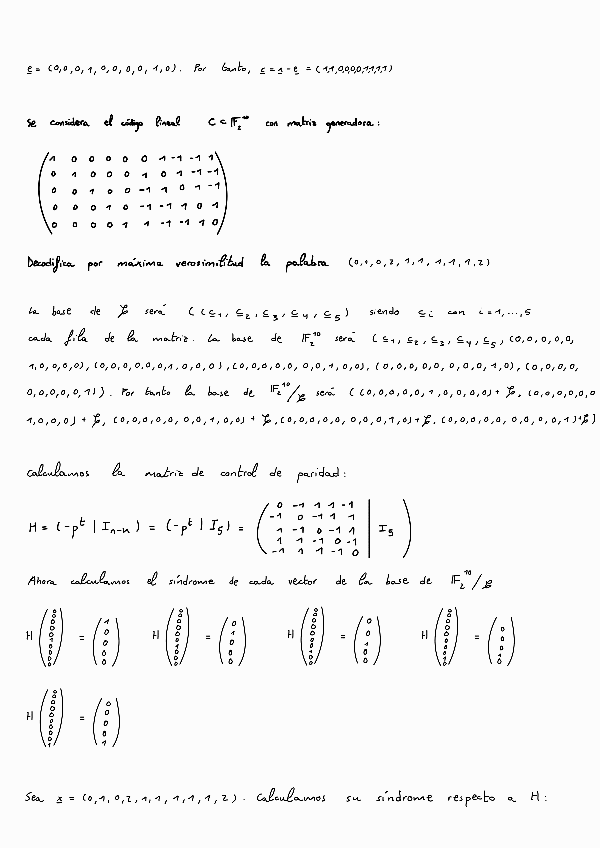 e = (0,0,0,1,0,0,0,0,1,0). Por tanto, c = x - e = (1,1,0,0,0,1,1,1,1)
Se considera el código lineal C ⊂ F₂¹⁰ con matriz generadora:
1 0 0 0 0 0 1 -1 -1 1
0 1 0 0 0 1 0 1 -1 -1
0 0 1 0 0 -1 1 0 1 -1
0 0 0 1 0 -1 -1 1 0 1
0 0 0 0 1 1 -1 -1 1 0
Decodifica por máxima verosimilitud la palabra (0,1,0,2,1,1,1,1,1,2)
La base de C será ((c₁, c₂, c₃, c₄, c₅) siendo cᵢ con i=1,...,5
cada fila de la matriz. La base de F₂¹⁰ será (c₁, c₂, c₃, c₄, c₅, (0,0,0,0,0,
1,0,0,0,0), (0,0,0,0,0,0,1,0,0,0), (0,0,0,0,0,0,0,1,0,0), (0,0,0,0,0,0,0,0,1,0), (0,0,0,0,
0,0,0,0,0,1)). Por tanto la base de F₂¹⁰/C será ((0,0,0,0,0,1,0,0,0,0) + C, (0,0,0,0,0,0
1,0,0,0) + C, (0,0,0,0,0,0,0,1,0,0) + C, (0,0,0,0,0,0,0,0,1,0) + C, (0,0,0,0,0,0,0,0,0,1) + C)
Calculamos la matriz de control de paridad:
H = (-pᵗ | Iₙ₋ₖ) = (-pᵗ | I₅) =
0 -1 1 1 -1
-1 0 -1 1 1
1 -1 0 -1 1
1 1 -1 0 -1
-1 1 1 -1 0
I₅
Ahora calculamos el síndrome de cada vector de la base de F₂¹⁰/C
H (0 0 0 0 0 1 0 0 0 0) = (1 0 0 0 0) H (0 0 0 0 0 0 1 0 0 0) = (0 1 0 0 0) H (0 0 0 0 0 0 0 1 0 0) = (0 0 1 0 0) H (0 0 0 0 0 0 0 0 1 0) = (0 0 0 1 0)
H (0 0 0 0 0 0 0 0 0 1) = (0 0 0 0 1)
Sea x = (0,1,0,2,1,1,1,1,1,2). Calculamos su síndrome respecto a H: